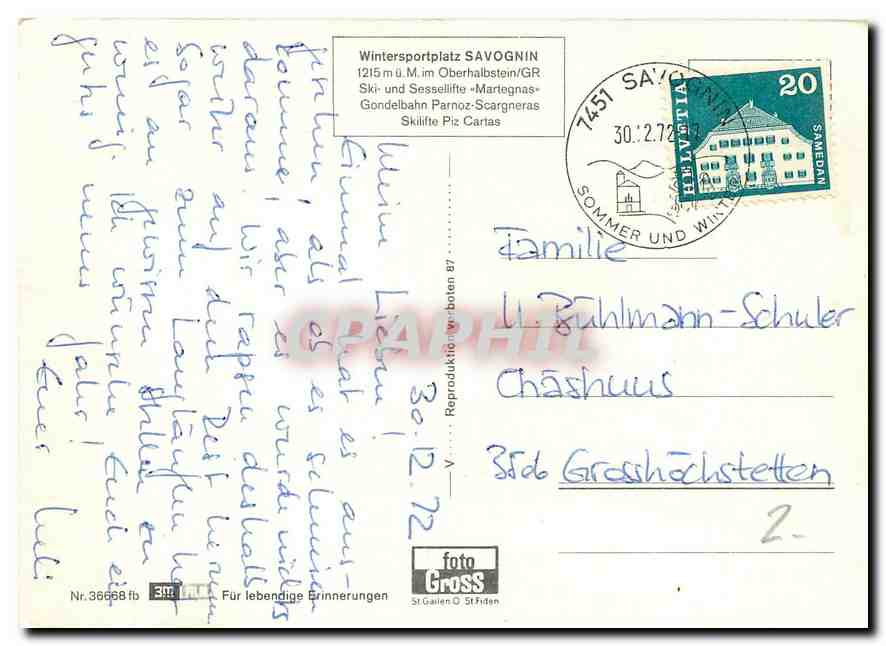 Wintersportplatz SAVOGNIN
1215 m ü. M. im Oberhalbstein/GR
Ski- und Sessellifte «Martegnas»
Gondelbahn Parnoz-Scargneras
Skilifte Piz Cartas
7451 SAVOGNIN
30.12.72
SOMMER UND WINTER
HELVETIA
20
SAMEDAN
30.12.72
Meine Lieben!
Einmal hat es aus-
gesehen, als ob es schneien
komme, aber es wurde nichts
daraus. Wir tappen deshalb
weiter auf dem Rest herum
Sogar zum Langläufen hat
es an gewissen Stellen zu
wenig. Ich wünsche Euch ein
gutes neues Jahr!
Euer Ueli
Familie
U. Bühlmann-Schuler
Chäshuus
3506 Grosshöchstetten
2.-
V ..... Reproduktion verboten 87
CPAPHIL
foto
GROSS
St. Gallen O St. Fiden
Nr. 36668 fb
3m
Für lebendige Erinnerungen